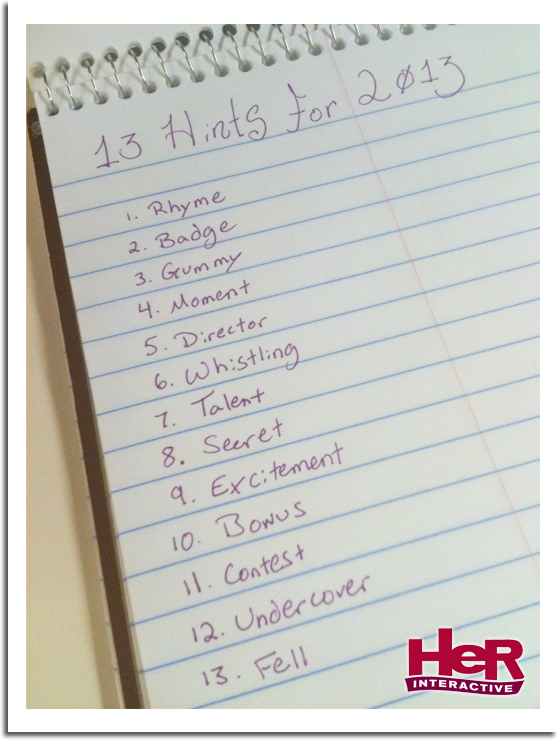 13 Hints for 2013
1. Rhyme
2. Badge
3. Gummy
4. Moment
5. Director
6. Whistling
7. Talent
8. Secret
9. Excitement
10. Bonus
11. Contest
12. Undercover
13. Fell
HeR
INTERACTIVE